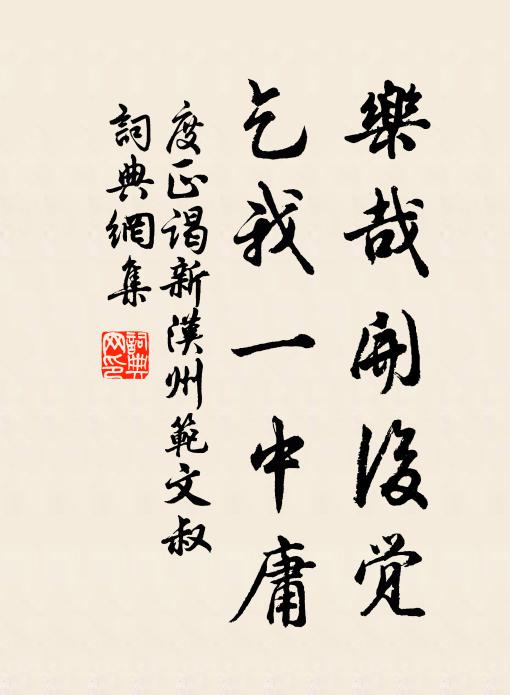 樂哉開後覺
乞我一中庸
度正謁新漢州範文叔
詞典網集
詞典网印